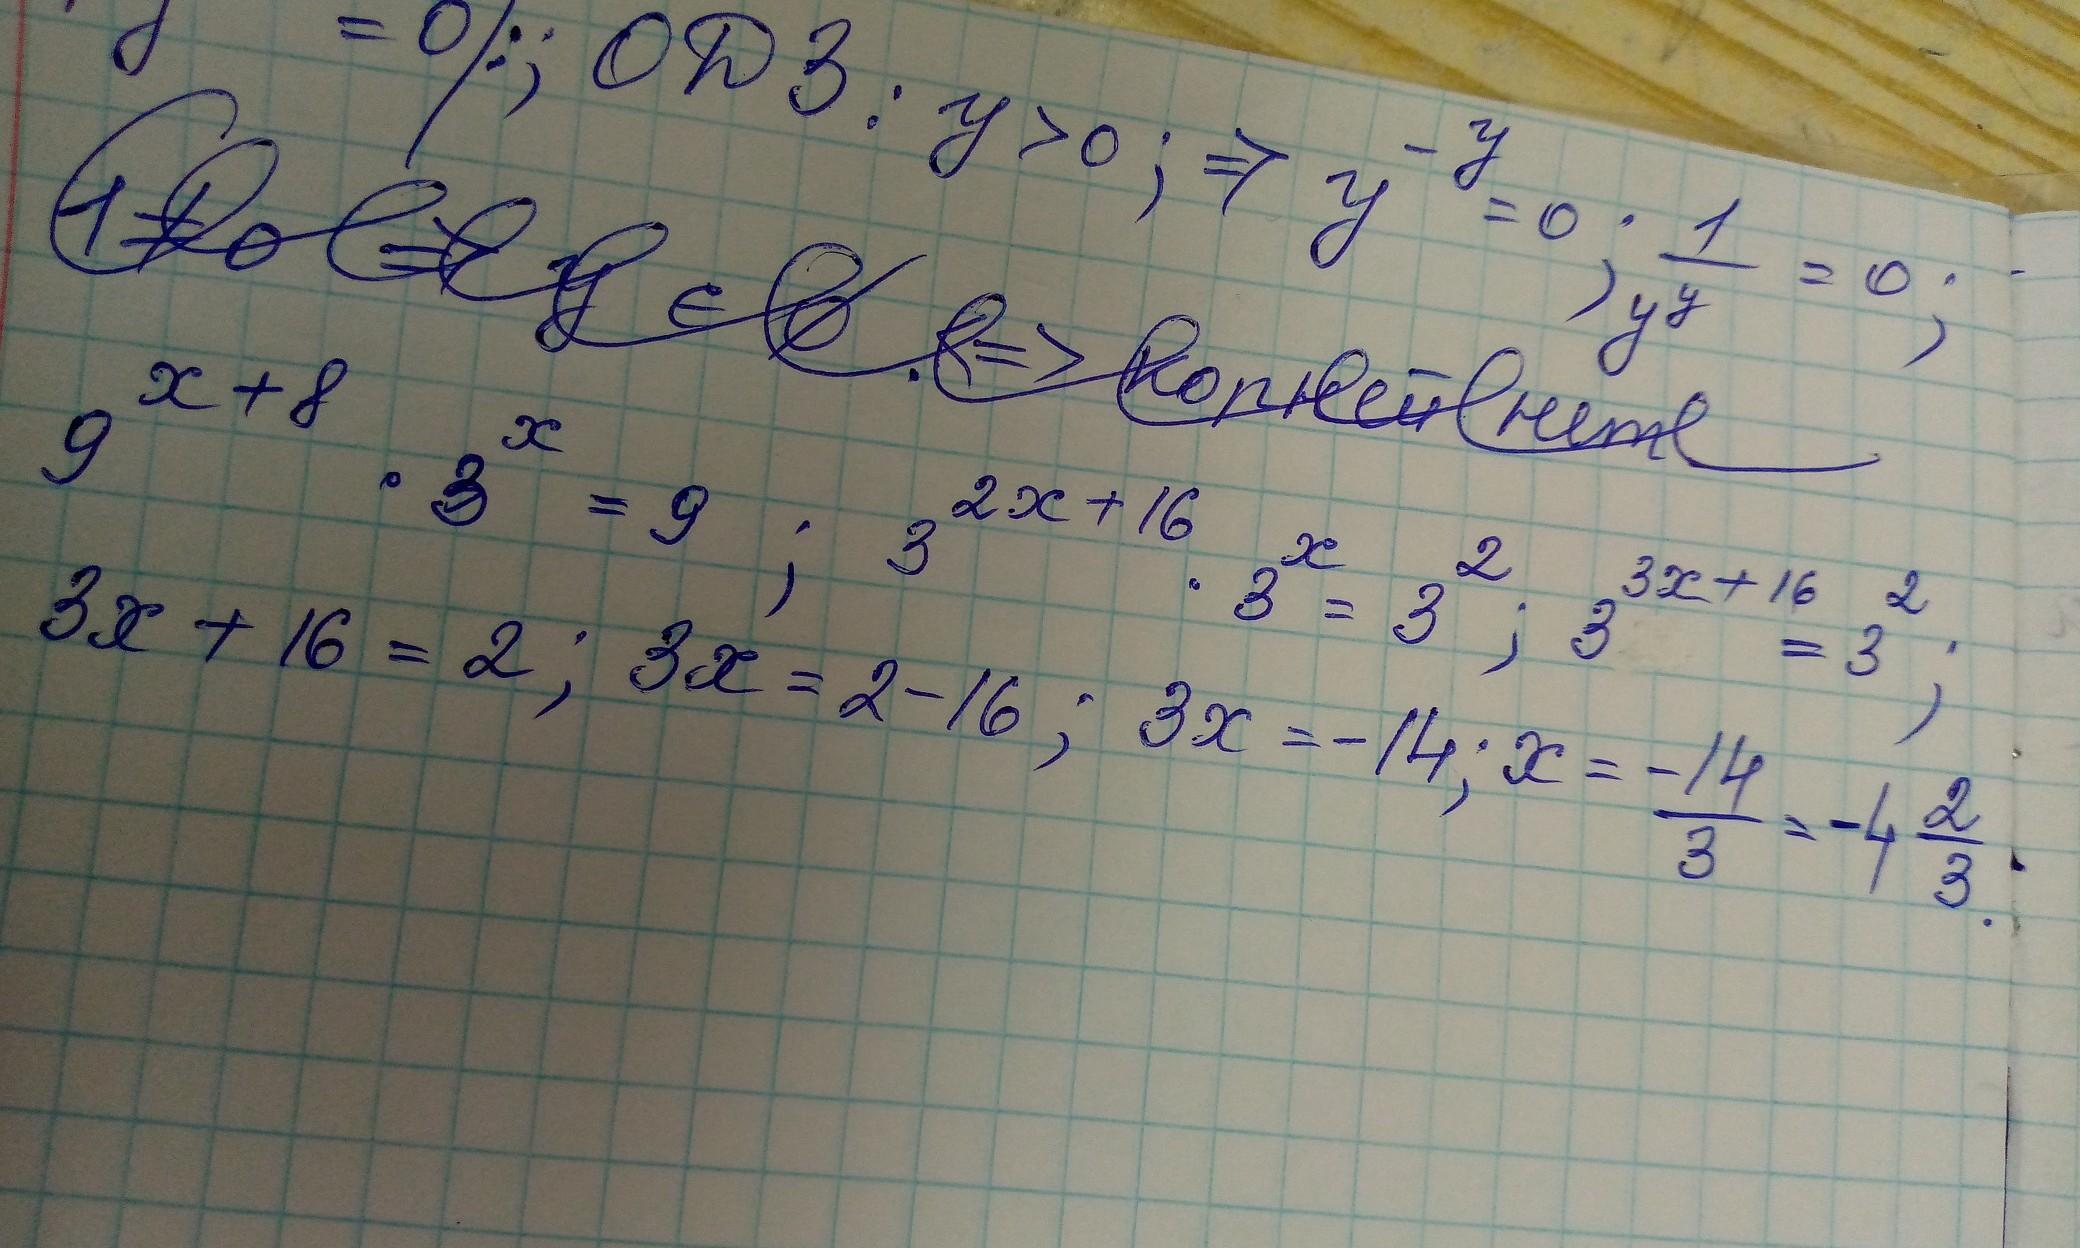 y = 0; ОДЗ: y > 0; ⇒ y^{-y} = 0; \frac{1}{y^y} = 0;
1 ≠ 0 ⇒ y ∈ ∅. ⇒ корней нет
9^{x+8} · 3^x = 9; 3^{2x+16} · 3^x = 3^2; 3^{3x+16} = 3^2;
3x + 16 = 2; 3x = 2 - 16; 3x = -14; x = \frac{-14}{3} = -4\frac{2}{3}.